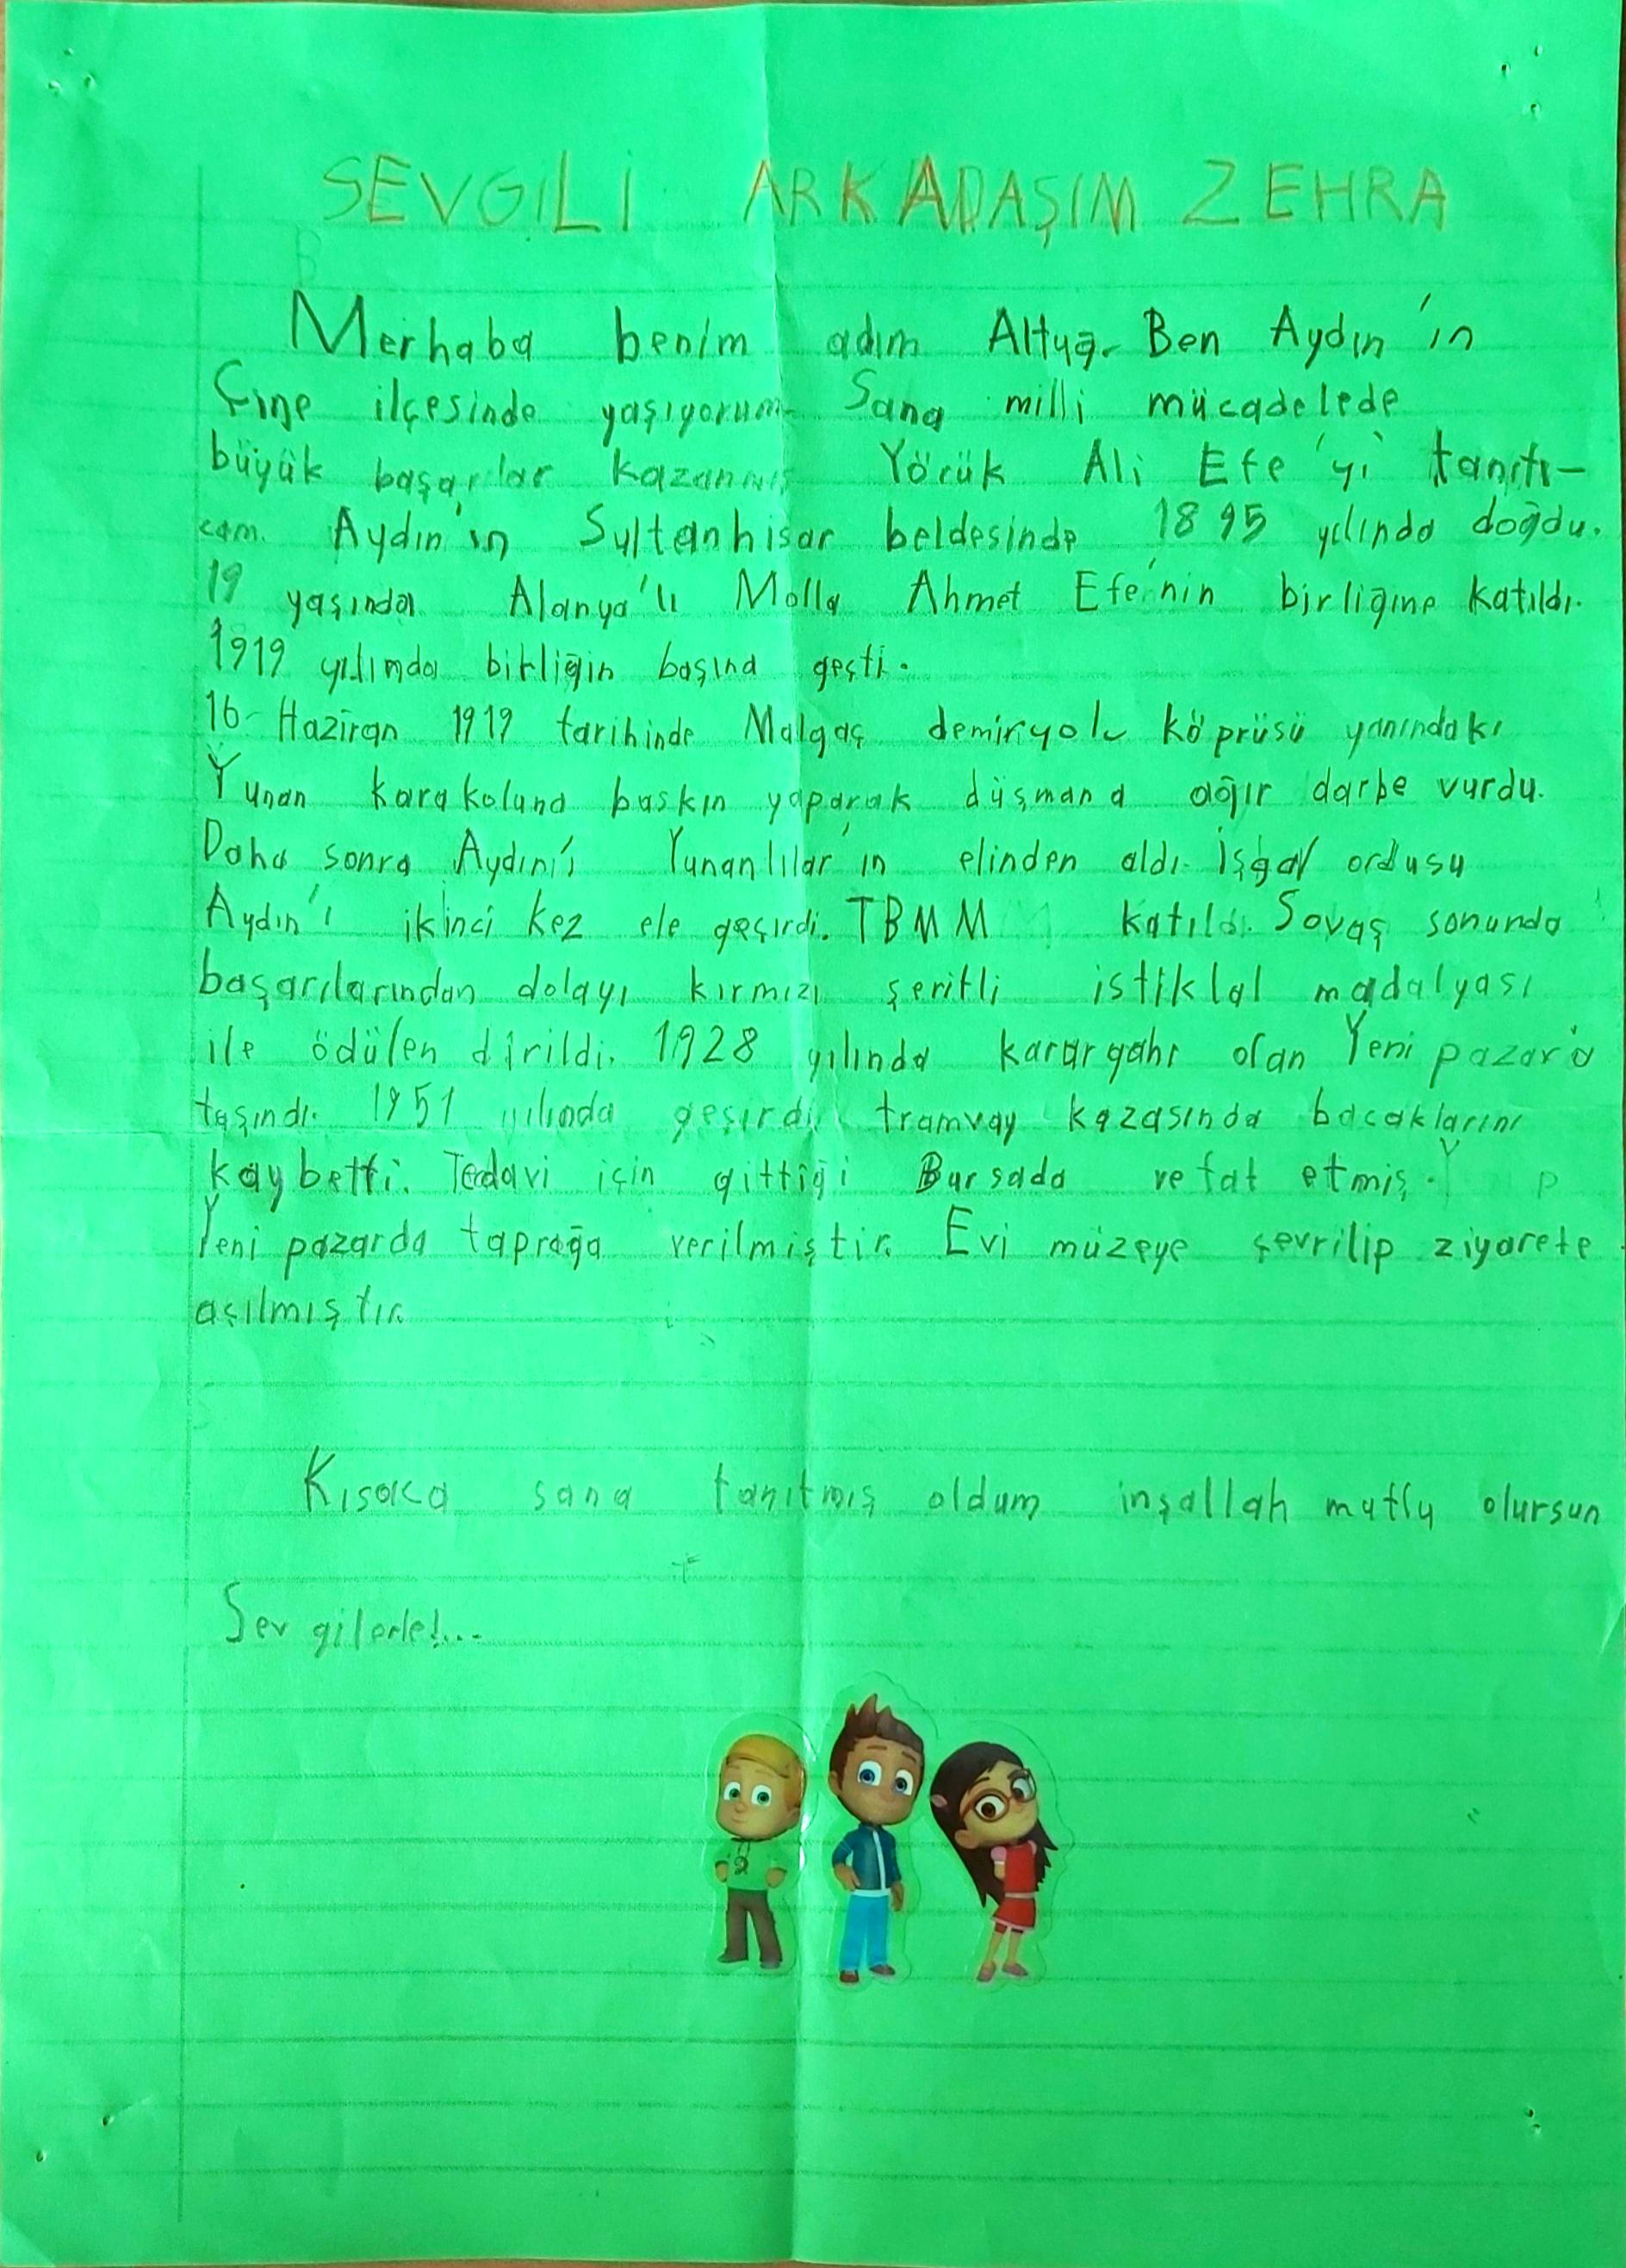 SEVGİLİ ARKADAŞIM ZEHRA
Merhaba benim adım Altuğ. Ben Aydın'ın
Çine ilçesinde yaşıyorum. Sana milli mücadelede
büyük başarılar kazanmış Yörük Ali Efe'yi tanıtı-
cam. Aydın'ın Sultanhisar beldesinde 1895 yılında doğdu.
19 yaşında Alanya'lı Molla Ahmet Efe'nin birliğine katıldı.
1919 yılında birliğin başına geçti.
16 Haziran 1919 tarihinde Malgaç demiryolu köprüsü yanındaki
Yunan karakoluna baskın yaparak düşmana ağır darbe vurdu.
Daha sonra Aydını'ı Yunanlılar'ın elinden aldı. İşgal ordusu
Aydın'ı ikinci kez ele geçirdi. TBMM katıldı. Savaş sonunda
başarılarından dolayı kırmızı şeritli istiklal madalyası
ile ödülen dirildi. 1928 yılında karargahı olan Yeni pazar'a
taşındı. 1951 yılında geçirdi tramvay kazasında bacaklarını
kaybetti. Tedavi için gittiği Bursada vefat etmiş.
Yeni pazarda taprağa verilmiştir. Evi müzeye çevrilip ziyarete
açılmıştır.
Kısaca sana tanıtmış oldum inşallah mutlu olursun
Sevgilerle!...